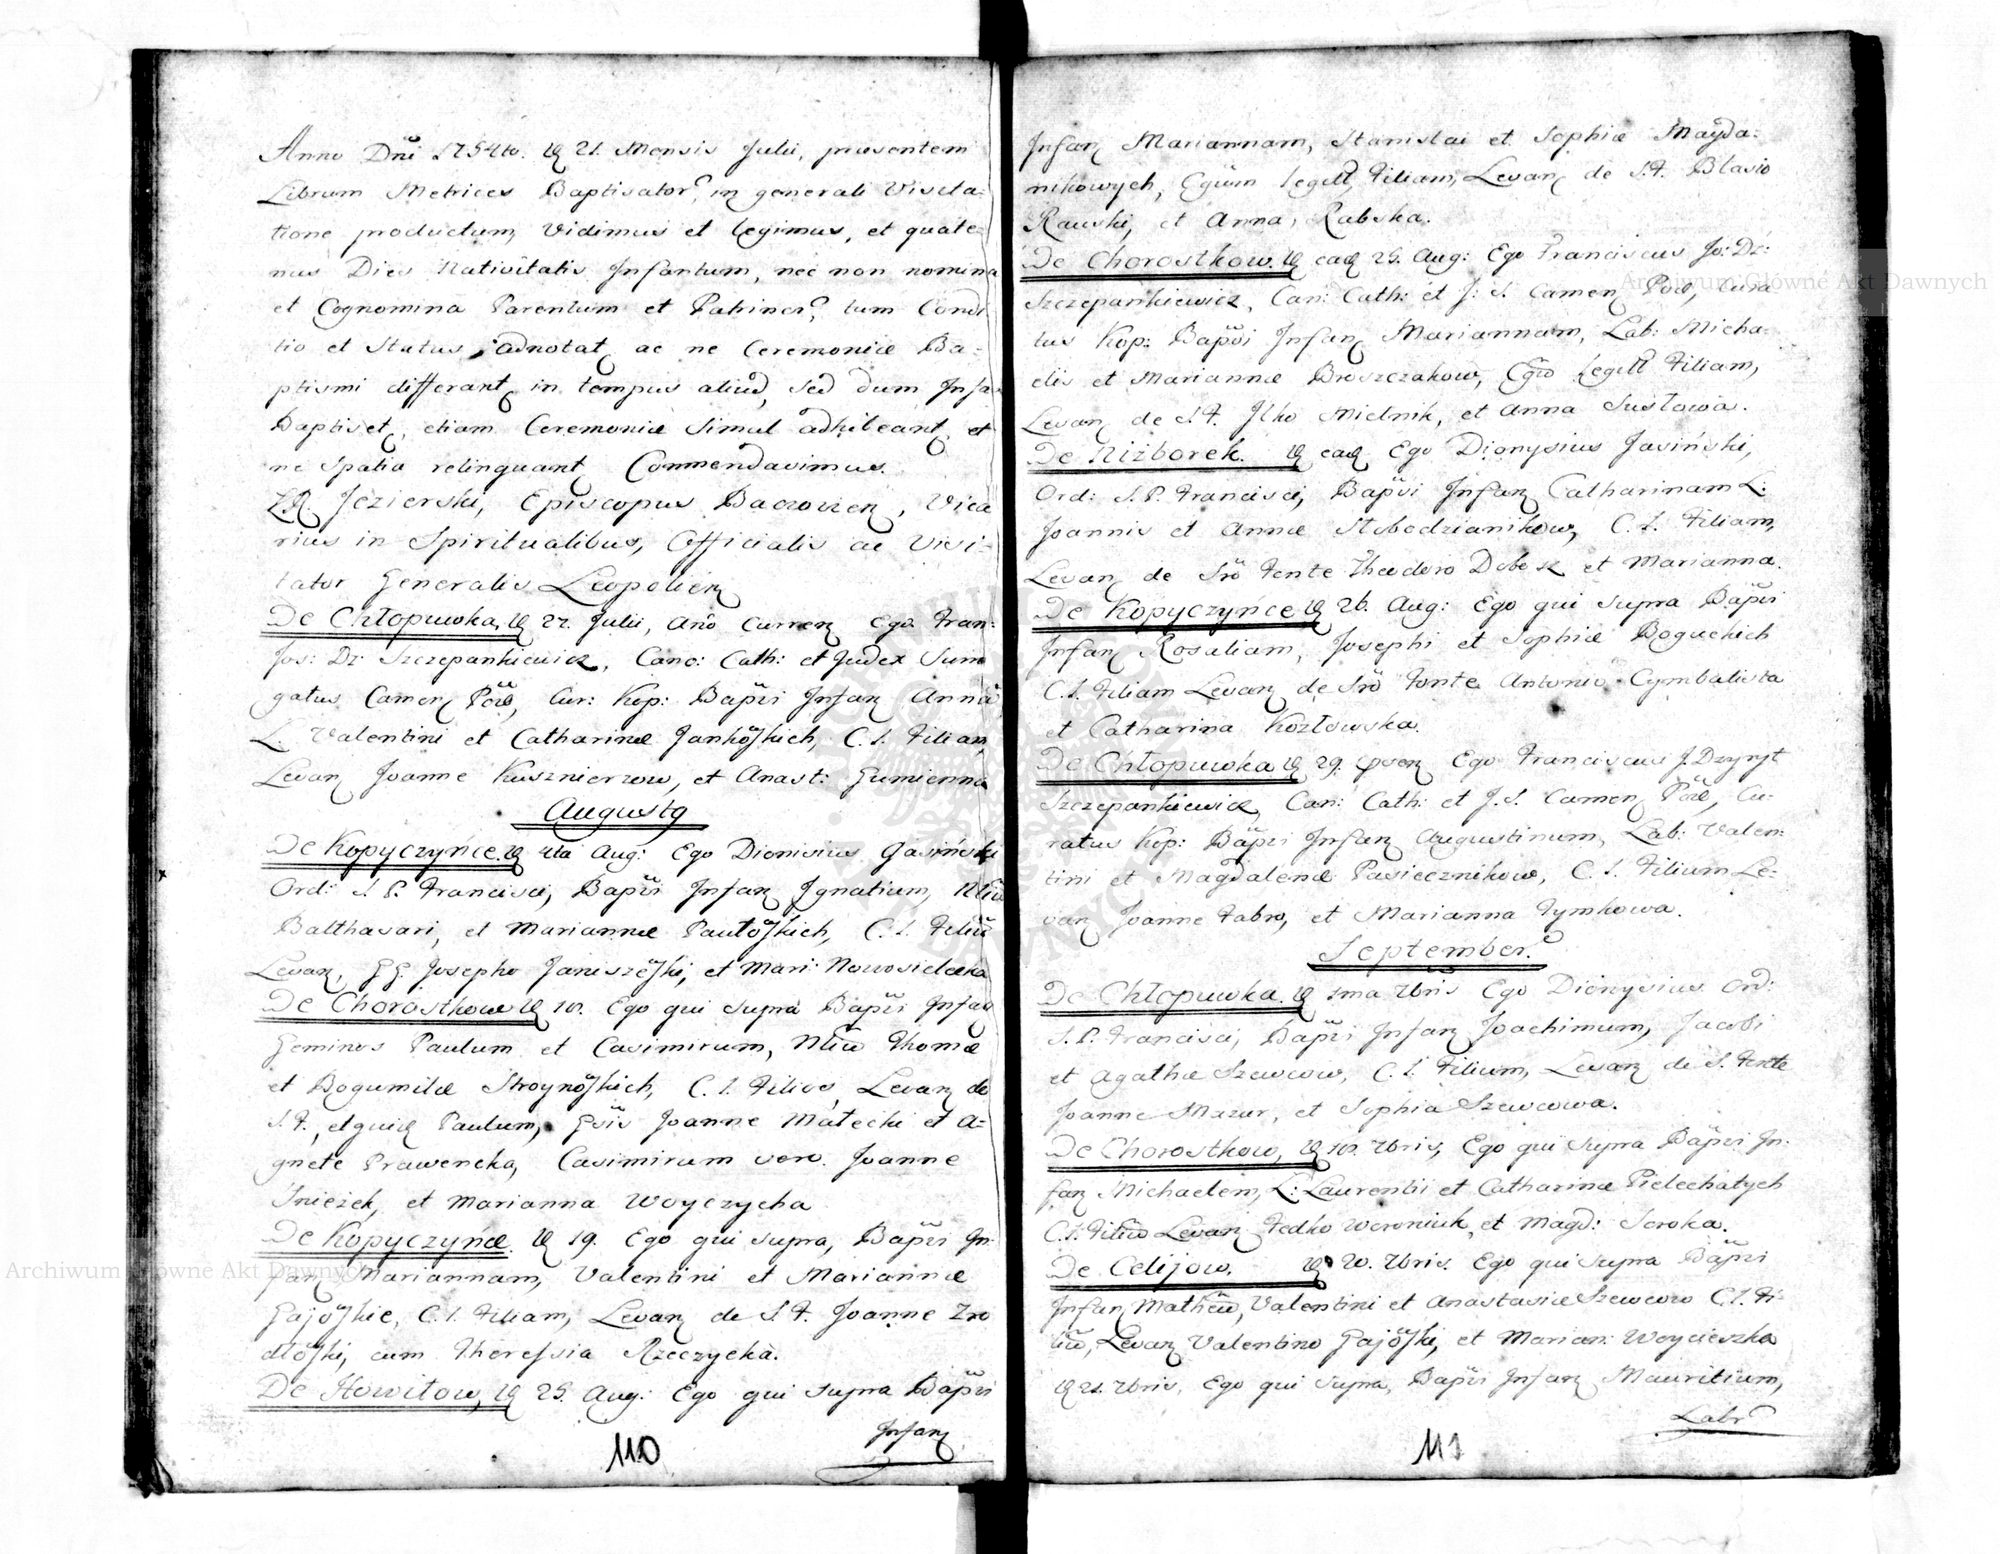 Anno Dni 1754to. d 21. Mensis Julii, praesentem
Librum Metrices Baptisator, in generali Visita-
tione productum, Vidimus et legimus, et quate-
nus Dies Nativitatis Infantum, nec non nomina
et Cognomina Parentum et Patrinor, tum Condi
tio et Status, adnotat, ac ne Ceremoniae Ba-
ptismi differant, in tempus aliud, sed dum Infa
Baptiset, etiam Ceremoniae Simul adhibeant, et
ne Spatia relinquant, Commendavimus.
Jezierski, Episcopus Bacovien, Vica
rius in Spiritualibus, Officialis ac Visi-
tator Generalis Leopolien
De Chłopuwka, d 27. Julii, Ano Curren Ego Fran:
Jos: Dz: Szczepankiewicz, Cano: Cath: et Judex Surro
gatus Camen Pod, Cur: Kop: Bapzi Infan Anna
L. Valentini et Catharinae Jankoskich, C. L. Filiam,
Levan Joanne Kusznierzow, et Anast: Gumienna
Augusty
De Kopyczyńce. d 4ta Aug: Ego Dionisius Gasiński
Ord: S. P. Francisci, Bapzi Infan Ignatium, Nliu
Balthasari, et Mariannae Pautoskich, C. L. Filiu
Levan, GG. Josepho Janiszeski, et Mari: Nowosielecka
De Chorostkow d 10. Ego qui supra Bapzi Infan
Geminos Paulum et Casimirum, Nliu Thomae
et Bogumilae Stroynoskich, C. L. Filios, Levan de
S. F., et quid Paulum, Gsis Joanne Małecki et A-
gnete Prawencka, Casimirum vero. Joanne
Sniezek, et Marianna Woyczycha
De Kopyczyńce. d 19. Ego qui supra, Bapzi In-
fan Mariannam, Valentini et Mariannae
Gajoskie, C. L. Filiam, Levan de S. F. Joanne Zro
dłoski, cum Theressia Rzeczycka.
De Howiłow, d 25. Aug: Ego qui supra Bapzi
Infan
110
Infan Mariannam, Stanislai et Sophiae Magda-
nikowych, Eguim Legitt Filiam, Levan de S. F. Blasio
Rauski, et Anna, Rabska.
De Chorostkow. d ead 25. Aug: Ego Franciscus Jo: Dz:
Szczepankiewicz, Can: Cath: et J: S. Camen Pod, Cura
tus Kop: Bapzi Infan Mariannam, Lab: Micha-
elis et Mariannae Broszczakow, Egro Legitt Filiam,
Levan de S. F. Ilko Mielnik, et Anna Susłowa.
De Niżborek. d ead Ego Dionysius Jasiński,
Ord: S. P. Francisci, Bapzi Infan Catharinam L:
Joannis et Annae Stobodzianikow, C. L. Filiam,
Levan de Sro Fonte Theodoro Dobosz et Marianna.
De Kopyczyńce d 26. Aug: Ego qui supra Bapzi
Infan Rosaliam, Josephi et Sophiae Boguckich
C. L. Filiam Levan de Sro Fonte Antonio Cymbalista
et Catharina Kozłowska.
De Chłopuwka d 29. ejusem Ego Franciscus J. Dzyryt
Szczepankiewicz, Can: Cath: et J. S. Camen Pod, Cu-
ratus Kop: Bapzi Infan Augustinum, Lab: Valen-
tini et Magdalenae Pasiecznikow, C. L. Filium Le-
van Joanne Fabro, et Marianna Tymkowa.
September.
De Chłopuwka. d 1ma 7bris Ego Dionysius Ord:
S. P. Francisci, Bapzi Infan Joachimum, Jacobi
et Agathae Szewcow, C. L. Filium, Levan de S. Fonte
Joanne Mazur, et Sophia Szewcowa.
De Chorostkow, d 10. 7bris, Ego qui supra Bapzi In-
fan Michaelem, L: Laurentii et Catharinae Pielechatych
C. L. Filiu Levan Fedko Woroniuk, et Magd: Soroka.
De Celijow. d 20. 7bris. Ego qui supra Bapzi
Infan Matheu, Valentini et Anastasiae Szewcow C. L. Fi-
liu, Levan Valentino Gajoski, et Marian: Woycieszka
d 21. 7bris, Ego qui supra, Bapzi Infan Mauritium,
Labr
111
Archiwum Główne Akt Dawnych
Archiwum Główne Akt Dawnych